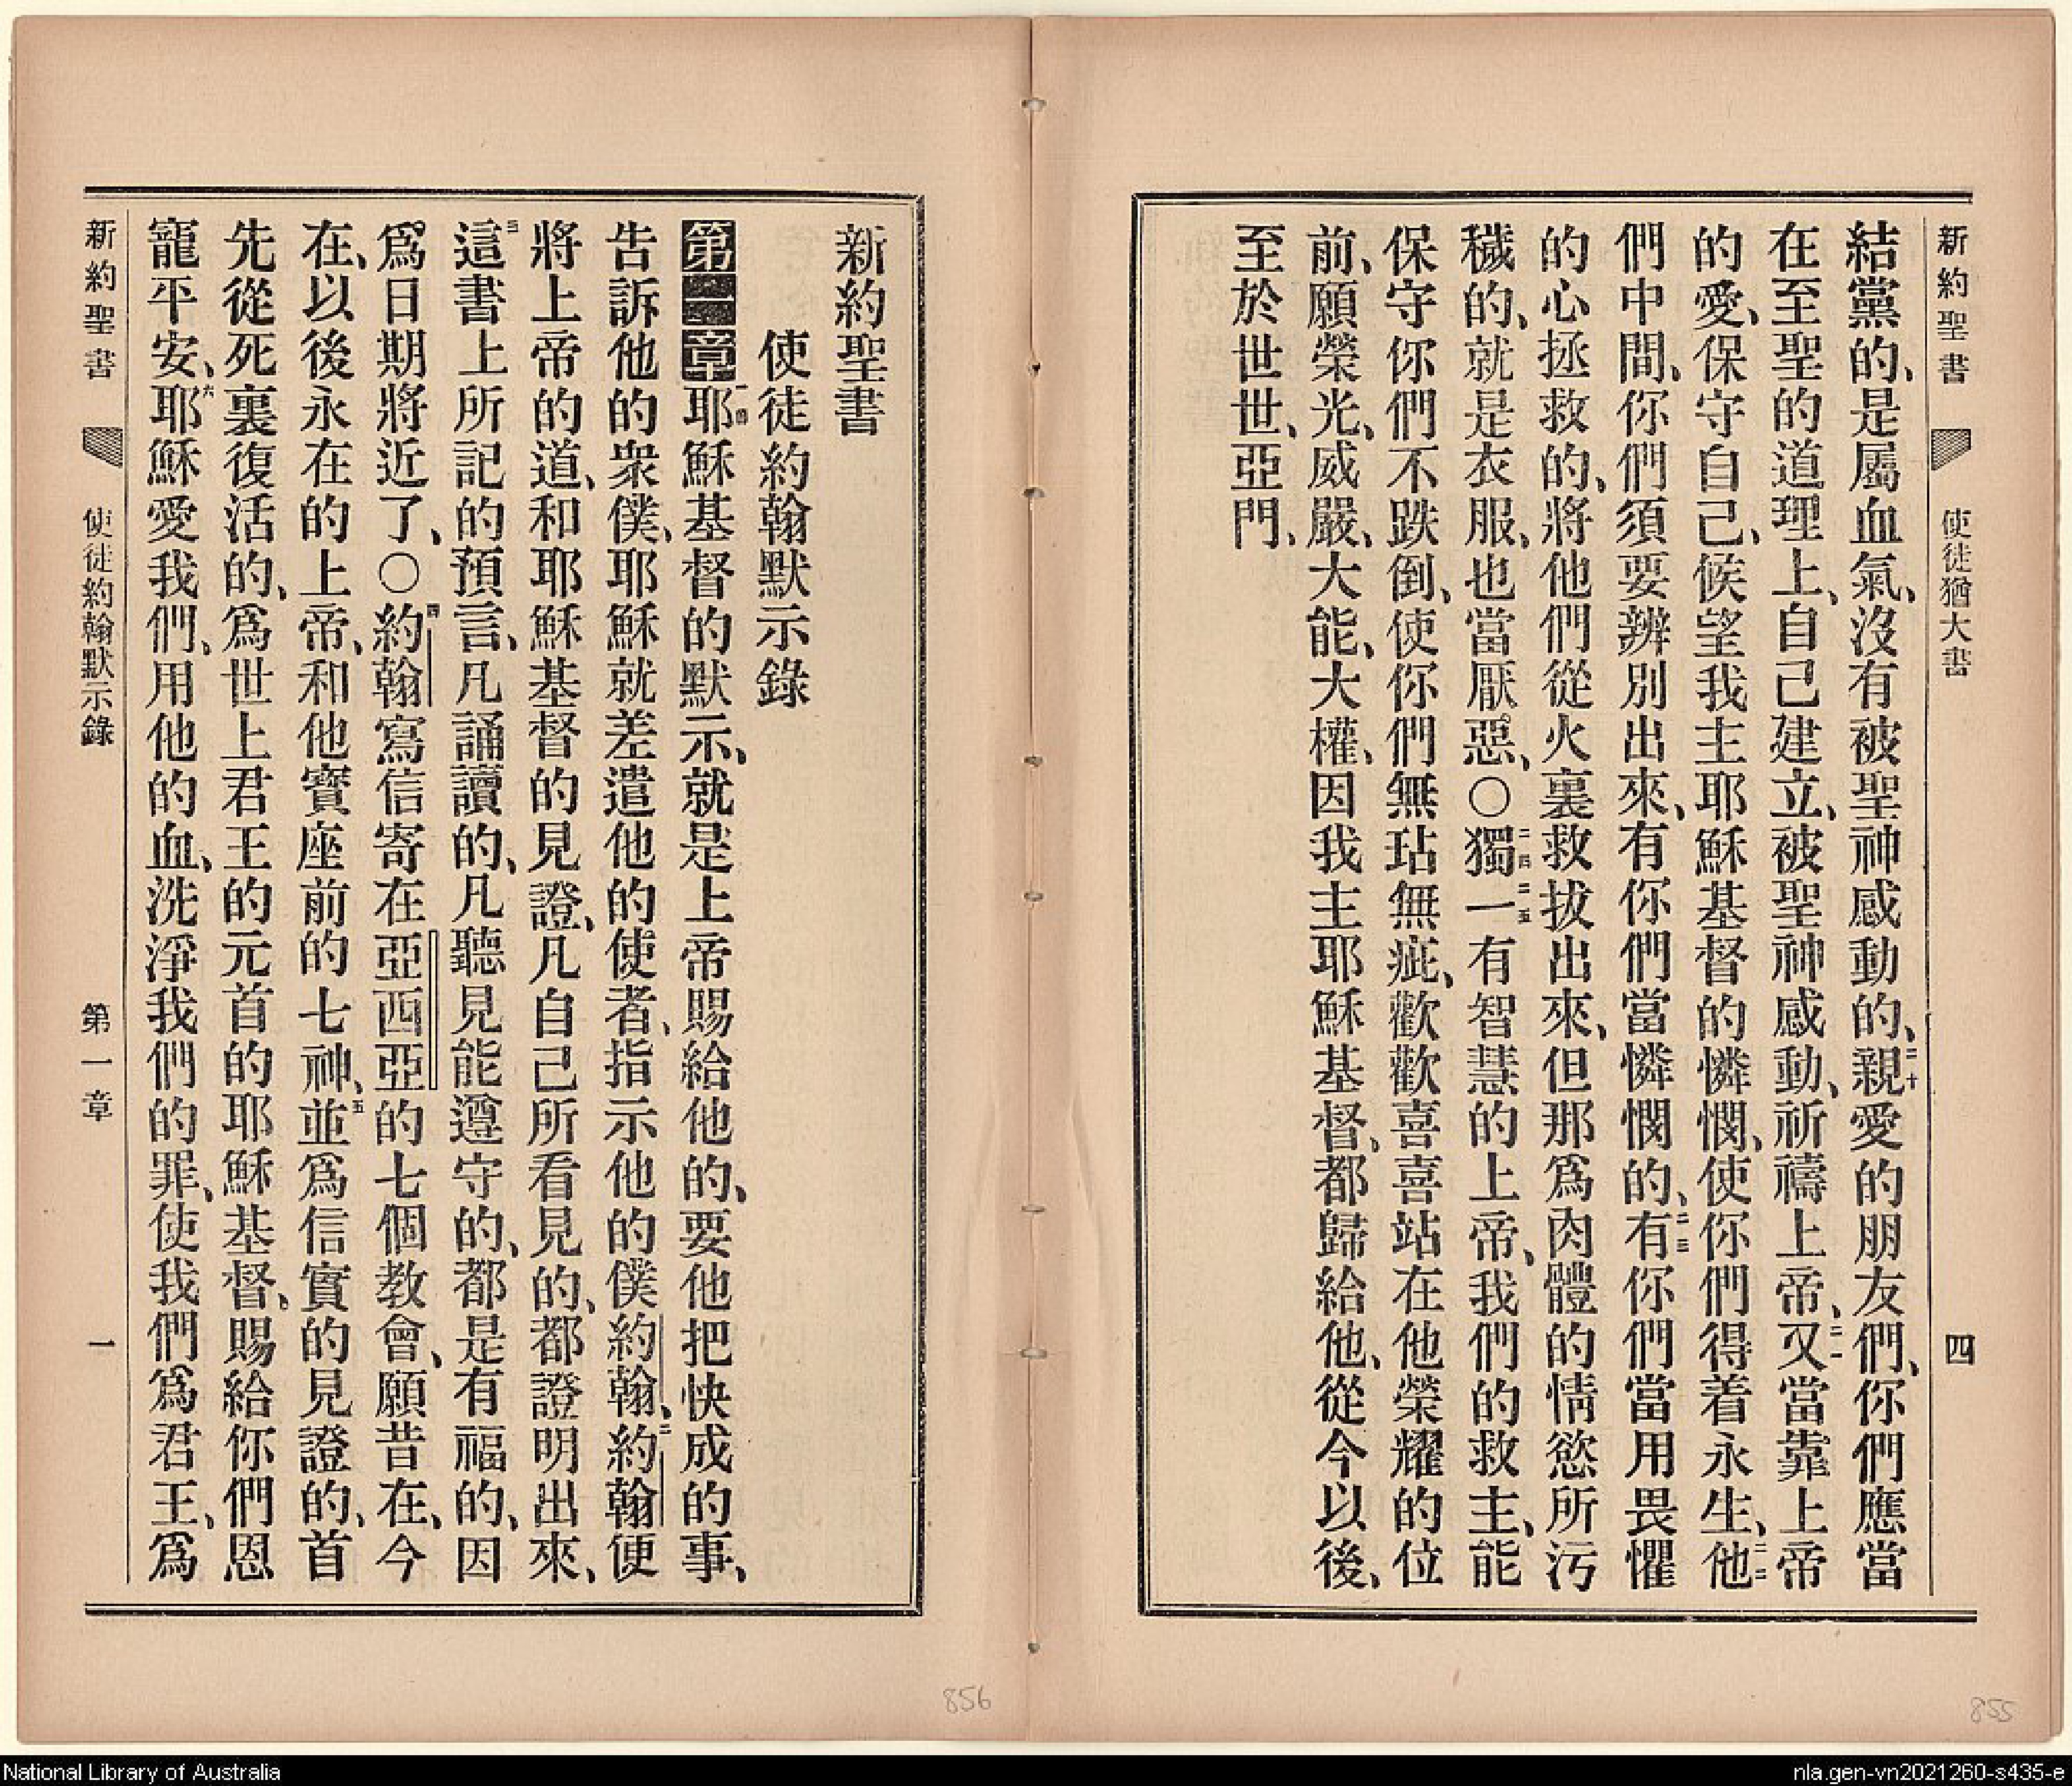 新約聖書　使徒猶大書　四
結黨的、是屬血氣、沒有被聖神感動的、二十親愛的朋友們、你們應當
在至聖的道理上、自己建立、被聖神感動、祈禱上帝、二一又當靠上帝
的愛、保守自己、候望我主耶穌基督的憐憫、使你們得着永生、二二他
們中間、你們須要辨別出來、有你們當憐憫的、二三有你們當用畏懼
的心拯救的、將他們從火裏救拔出來、但那爲肉體的情慾所污
穢的、就是衣服、也當厭惡、○二四獨二五一有智慧的上帝、我們的救主、能
保守你們不跌倒、使你們無玷無疵、歡歡喜喜站在他榮耀的位
前、願榮光、威嚴、大能、大權、因我主耶穌基督、都歸給他、從今以後、
至於世世、亞門、
855
新約聖書
使徒約翰默示錄
第一章一節耶穌基督的默示、就是上帝賜給他的、要他把快成的事、
告訴他的衆僕、耶穌就差遣他的使者、指示他的僕約翰、二約翰便
將上帝的道、和耶穌基督的見證、凡自己所看見的、都證明出來、
三這書上所記的預言、凡誦讀的、凡聽見能遵守的、都是有福的、因
爲日期將近了、○四約翰寫信寄在亞西亞的七個教會、願昔在、今
在、以後永在的上帝、和他寶座前的七神、五並爲信實的見證的、首
先從死裏復活的、爲世上君王的元首的耶穌基督、賜給你們恩
寵平安、六耶穌愛我們、用他的血、洗淨我們的罪、使我們爲君王、爲
新約聖書　使徒約翰默示錄　第一章　一
856
National Library of Australia
nla.gen-vn2021260-s435-e